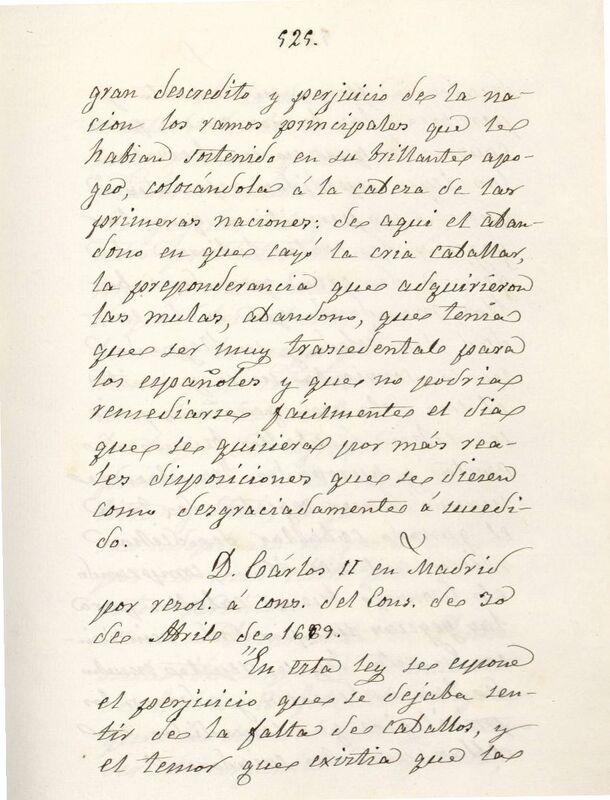 525.
gran descredito y perjuicio de la na-
cion los ramos principales que le
habian sostenido en su brillante apo-
geo, colocándola á la cabeza de las
primeras naciones: de aqui el aban-
dono en que cayó la cria caballar,
la preponderancia que adquirieron
las mulas, abandono, que tenia
que ser muy trascedental para
los españoles y que no podria
remediarse fácilmente el dia
que se quisiera por más rea-
les disposiciones que se diesen
como desgraciadamente á sucedi-
do.
D. Cárlos II en Madrid
por resol. á cons. del Cons. de 20
de Abril de 1689.
"En esta ley se espone
el perjuicio que se dejaba sen-
tir de la falta de caballos, y
el temor que existia que las